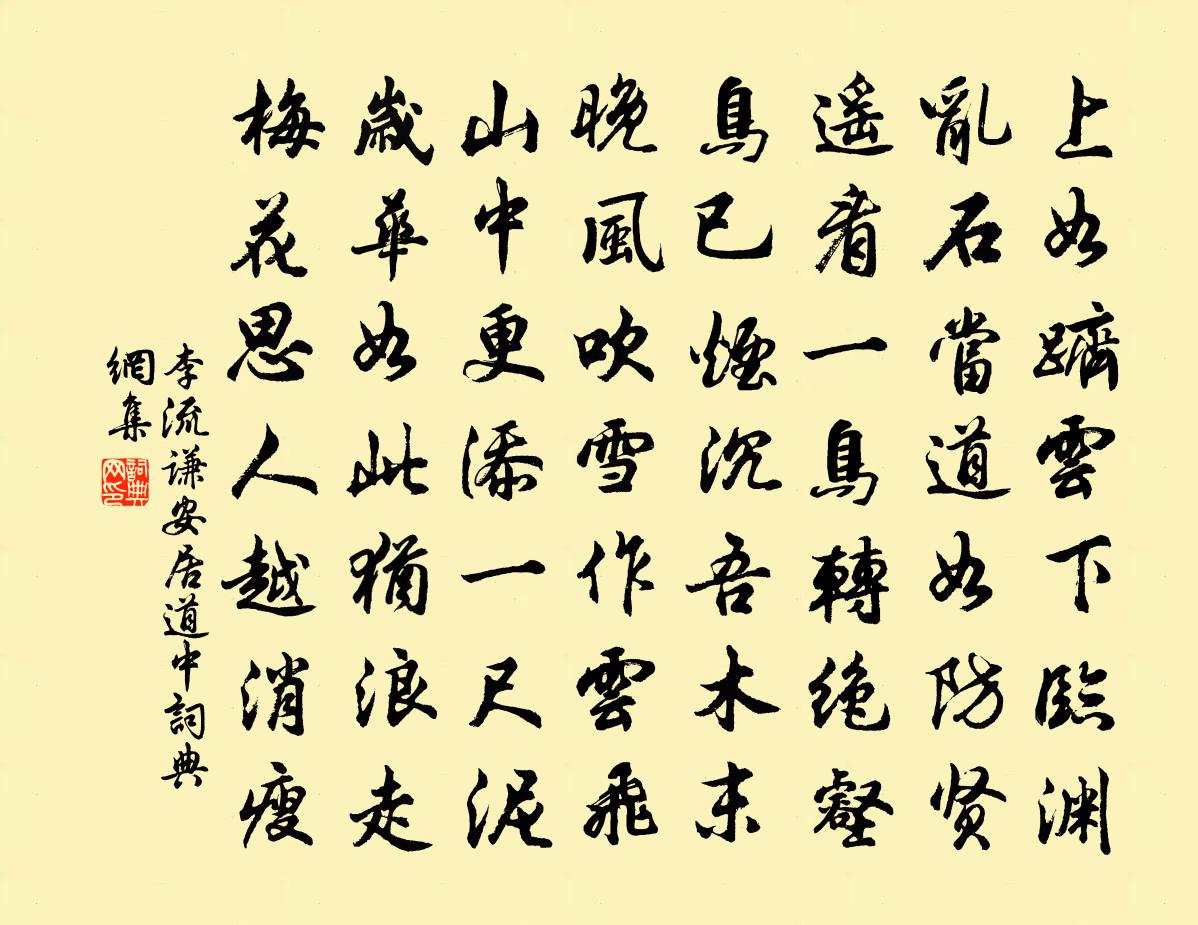 上如躋雲下臨淵
亂石當道如防賢
遥看一鳥轉絶壑
鳥已煙沉吾木末
晚風吹雪作雲飛
山中更添一尺泥
歲華如此猶浪走
梅花思人越消瘦
李流謙安居道中詞典
網集
詞典网印